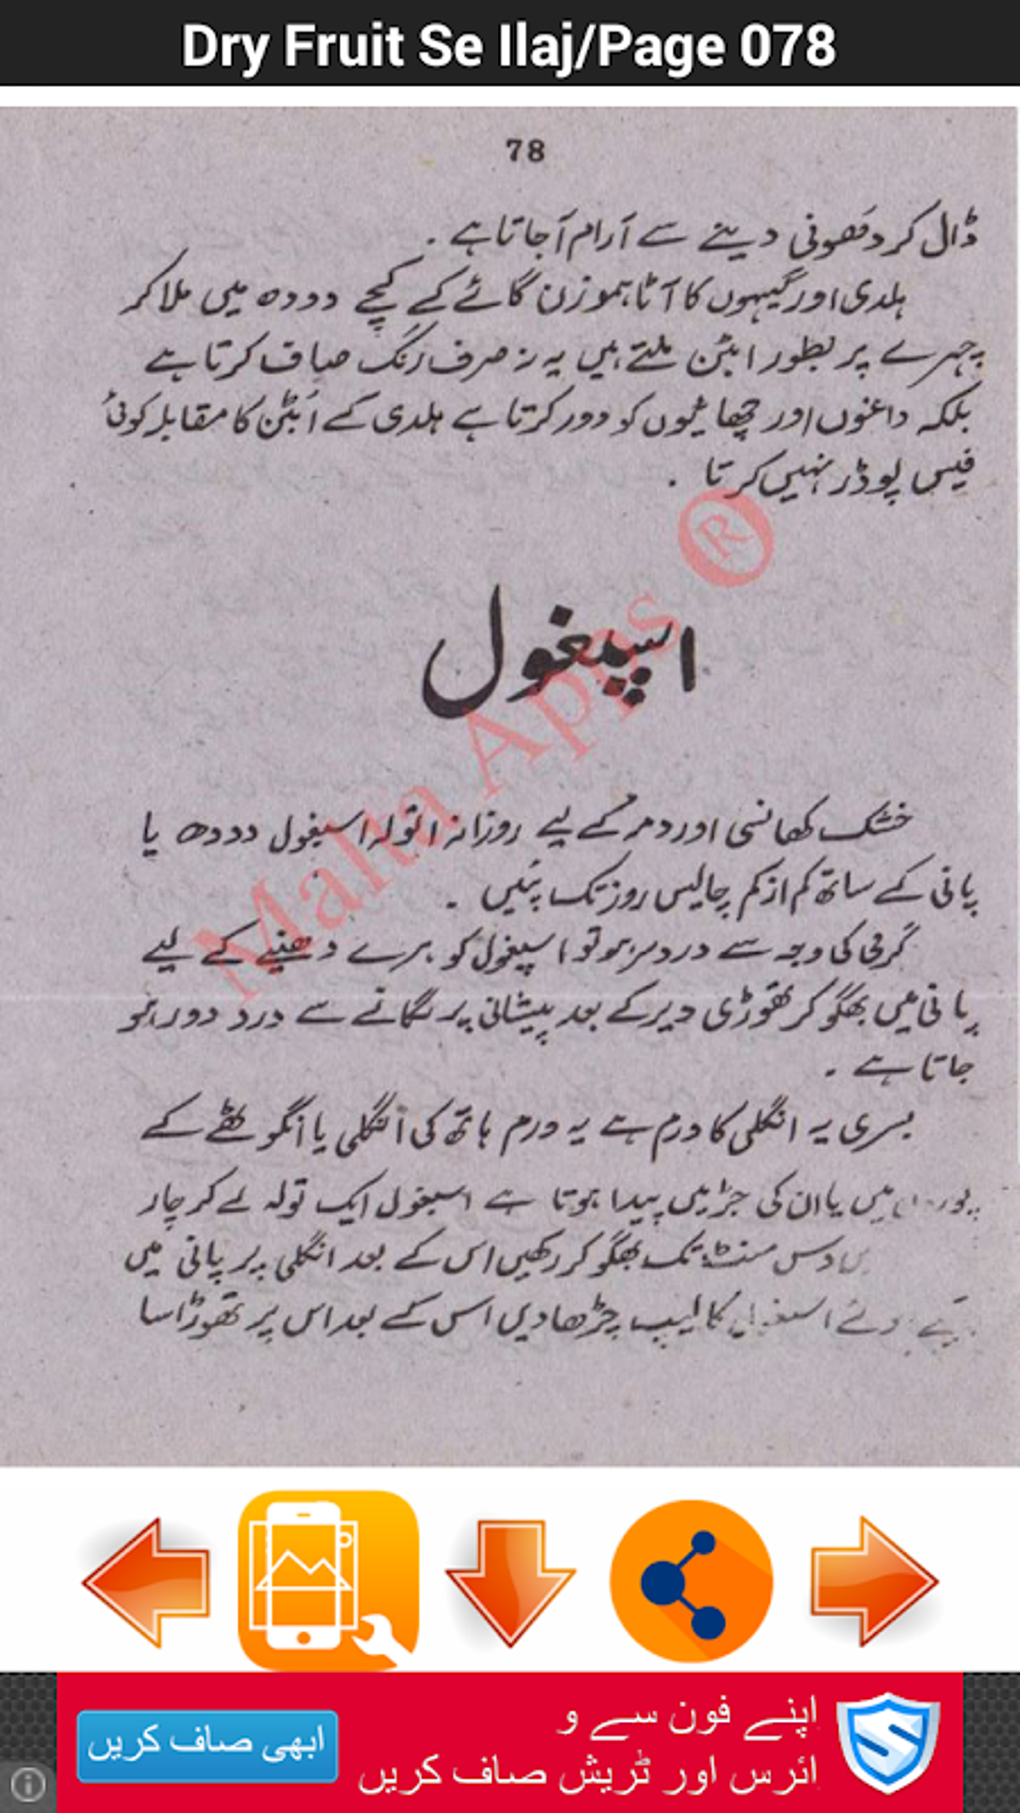 Dry Fruit Se Ilaj/Page 078
78
ڈال کر دھونی دینے سے آرام آجاتا ہے ۔
ہلدی اور گیہوں کا آٹا ہموزن گائے کے کچے دودھ میں ملا کر
چہرے پر بطور ابٹن ملتے ہیں یہ نہ صرف رنگ صاف کرتا ہے
بلکہ داغوں اور چھائیوں کو دور کرتا ہے ہلدی کے اُبٹن کا مقابلہ کوئی
فیس پوڈر نہیں کرتا ۔
اسپغول
خشک کھانسی اور دمہ کے لیے روزانہ ۱ تولہ اسپغول دودھ یا
پانی کے ساتھ کم از کم چالیس روز تک پئیں ۔
گرمی کی وجہ سے درد سر ہو تو اسپغول کو ہرے دھنیے کے لیے
پانی میں بھگو کر تھوڑی دیر کے بعد پیشانی پر لگانے سے درد دور ہو
جاتا ہے ۔
بسری یہ انگلی کا ورم ہے یہ ورم ہاتھ کی انگلی یا انگوٹھے کے
میں یا ان کی جڑ میں پیدا ہوتا ہے اسپغول ایک تولہ لے کر چار
دس منٹ تک بھگو کر رکھیں اس کے بعد انگلی پر پانی میں
اسپغول کا لیپ چڑھا دیں اس کے بعد اس پر تھوڑا سا
Malta Apps ®
اپنے فون سے و
ائرس اور ٹریش صاف کریں
ابھی صاف کریں